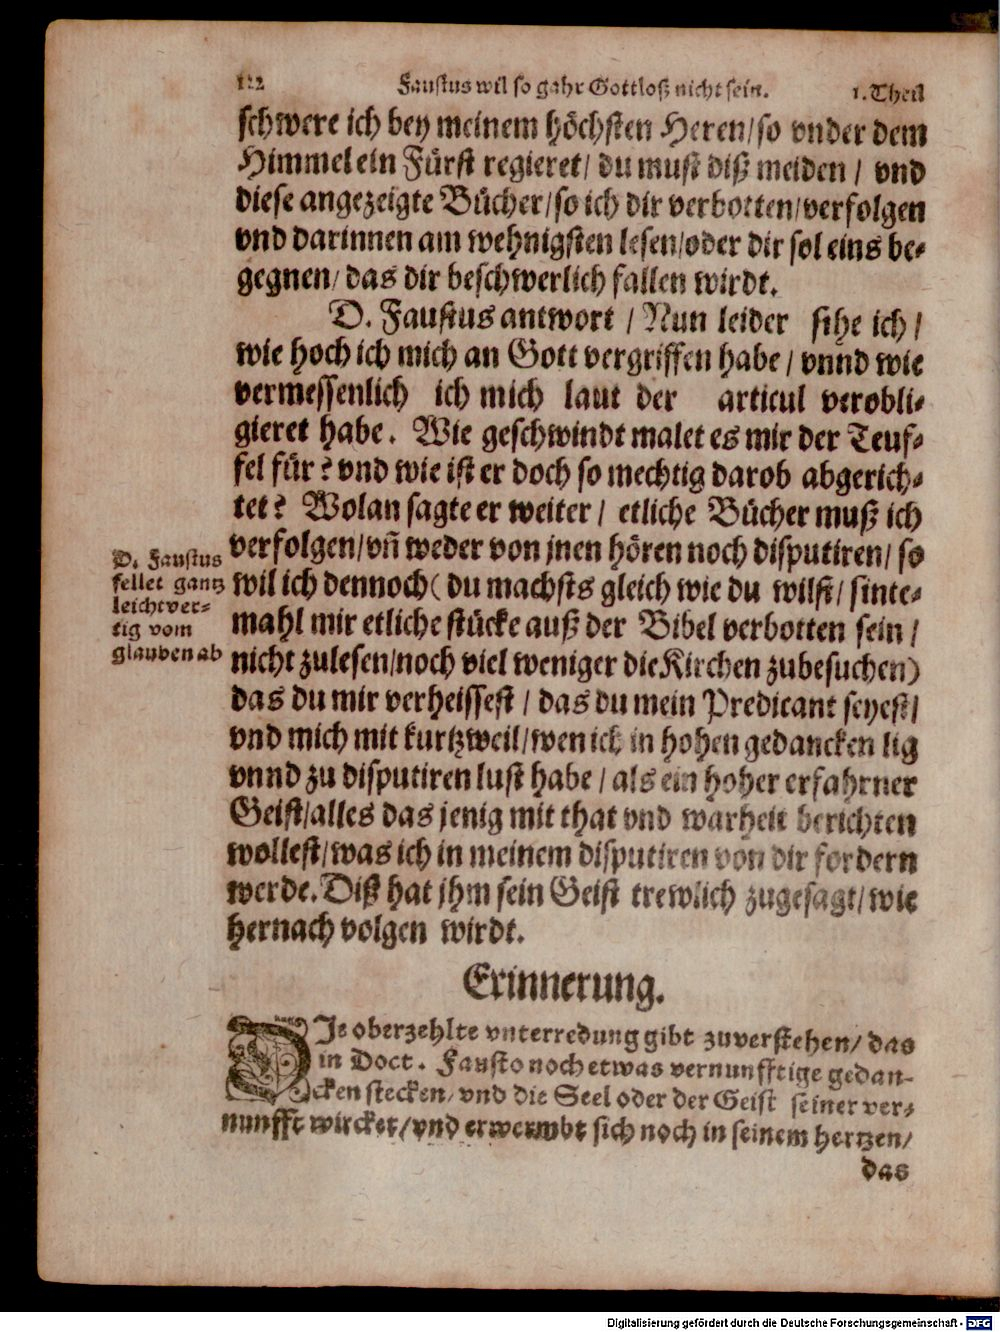 122 Faustus wil so gahr Gottloß nicht sein. 1. Theil
schwere ich bey meinem höchsten Heren/so vnder dem
Himmel ein Fürst regieret/ du must diß meiden / vnd
diese angezeigte Bücher/so ich dir verbotten/verfolgen
vnd darinnen am wehnigsten lesen/oder dir sol eins be-
gegnen/ das dir beschwerlich fallen wirdt.
D. Faustus antwort / Nun leider sihe ich /
wie hoch ich mich an Gott vergriffen habe / vnnd wie
vermessenlich ich mich laut der articul verobli-
gieret habe. Wie geschwindt malet es mir der Teuf-
fel für? vnd wie ist er doch so mechtig darob abgerich-
tet? Wolan sagte er weiter / etliche Bücher muß ich
verfolgen/vñ weder von jnen hören noch disputiren/ so
wil ich dennoch ( du machsts gleich wie du wilst/ sinte-
mahl mir etliche stücke auß der Bibel verbotten sein /
nicht zulesen/noch viel weniger die Kirchen zubesuchen)
das du mir verheissest / das du mein Predicant seyest/
vnd mich mit kurtzweil/wen ich in hohen gedancken lig
vnnd zu disputiren lust habe / als ein hoher erfahrner
Geist/alles das jenig mit that vnd warheit berichten
wollest/was ich in meinem disputiren von dir fordern
werde. Diß hat jhm sein Geist trewlich zugesagt/ wie
hernach volgen wirdt.
D. Faustus
fellet gantz
leichtver-
tig vom
glauben ab
Erinnerung.
DJe oberzehlte vnterredung gibt zuverstehen/ das
in Doct. Fausto noch etwas vernunfftige gedan-
cken stecken/ vnd die Seel oder der Geist seiner ver-
nunfft wircket/ vnd erwermbt sich noch in seinem hertzen/
das
Digitalisierung gefördert durch die Deutsche Forschungsgemeinschaft - DFG